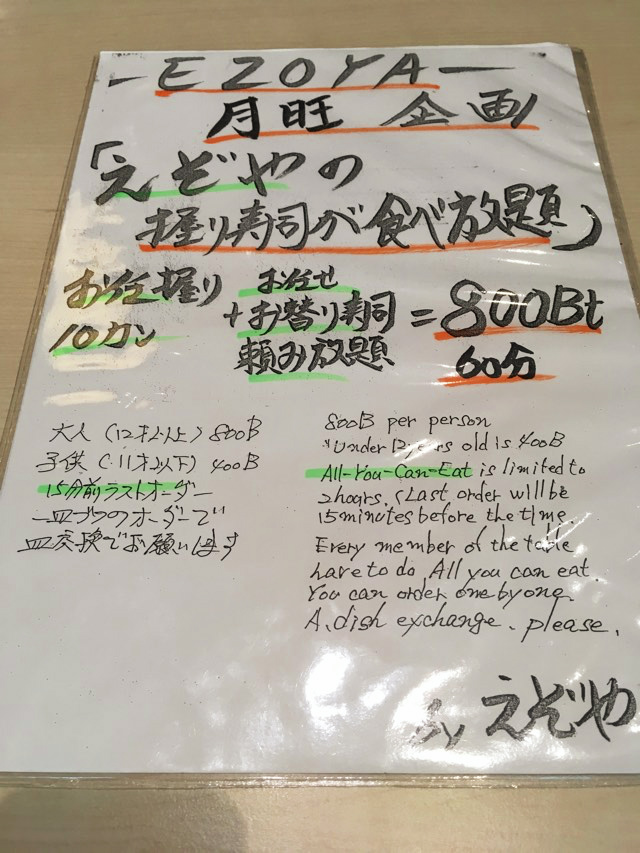 -EZOYA-
月旺 企画
「えぞやの
握り寿司が食べ放題」
お任握り
10カン
お任せ
+お替り寿司
頼み放題
=800Bt
60分
大人(12才以上)800B
子供(11才以下)400B
15分前ラストオーダー
一皿づつのオーダーで
皿交換でお願いします
800B per person
*Under 12 years old is 400B
All-You-Can-Eat is limited to
2hours. (Last order will be
15minutes before the time.
Every member of the table
have to do All you can eat.
You can order one by one.
A dish exchange. please.
by えぞや